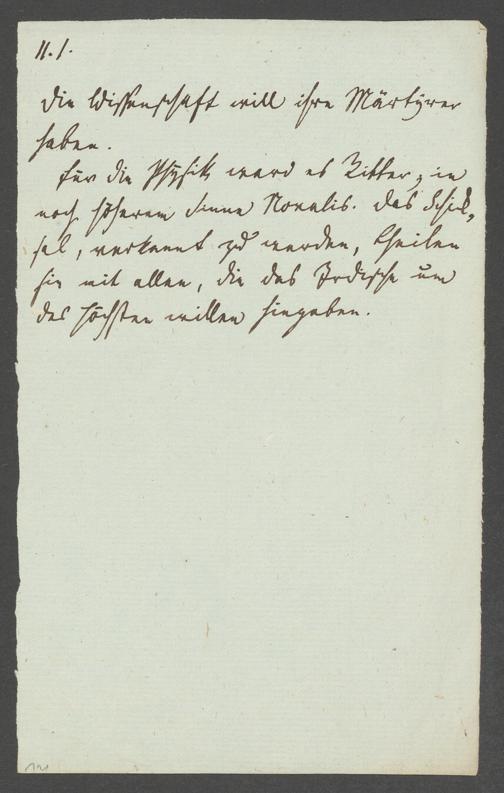 11.1.
Die Wissenschaft will ihre Märtyrer
haben.
Für die Physik ward es Ritter, in
noch höherem Sinne Novalis. Das Schick-
sal, verkannt zu werden, theilen
sie mit allen, die das Irdische um
des Höchsten willen hingeben.